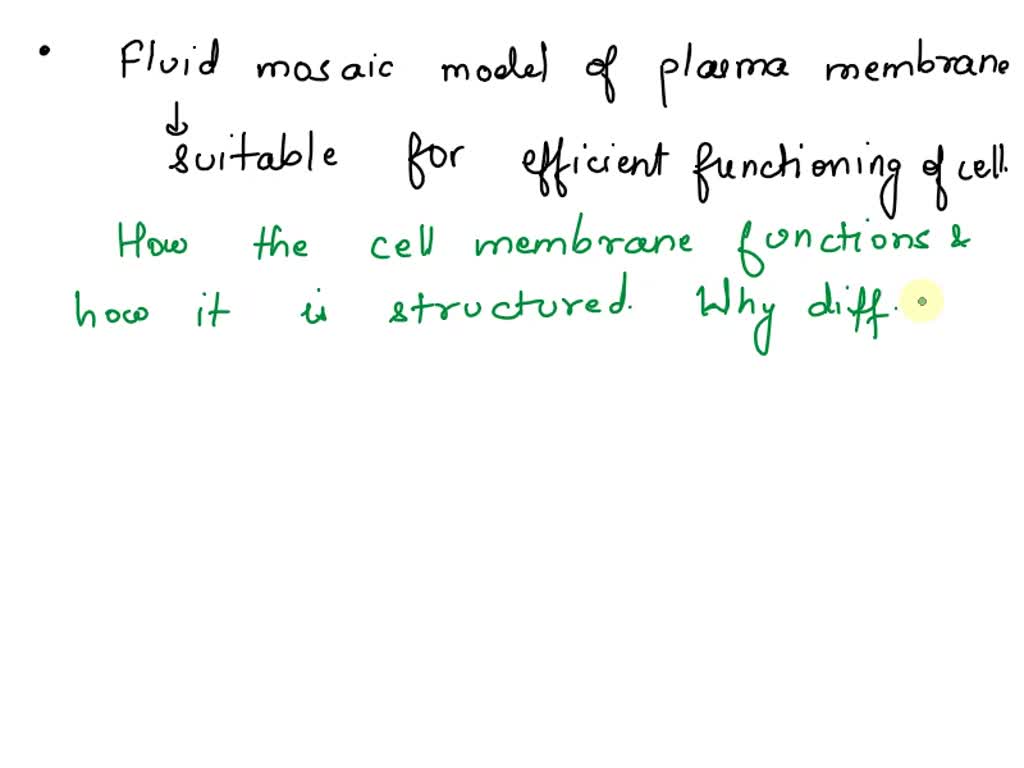 • Fluid mosaic model of plasma membrane
↓
suitable for efficient functioning of cell.
How the cell membrane functions &
how it is structured. Why diff.